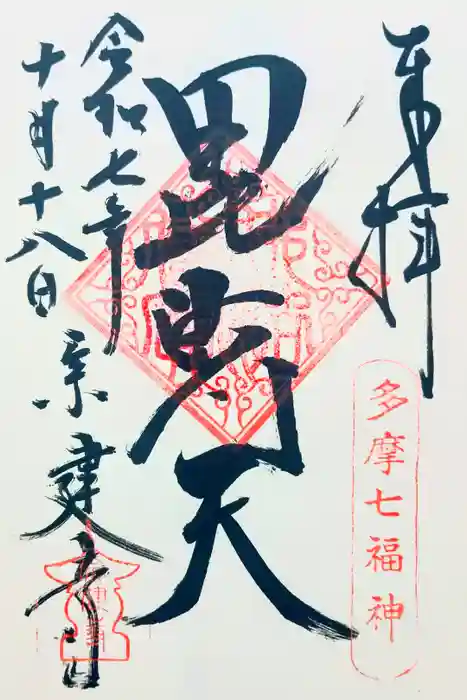 奉拝
多摩七福神
毘沙門天
令和七年
十月十八日
宗建寺